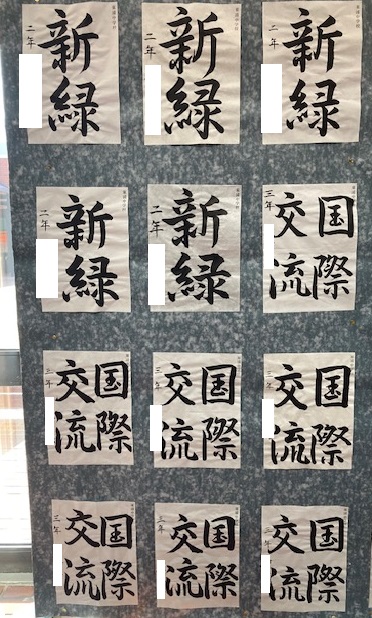 新緑
二年
新緑
二年
新緑
二年
新緑
二年
新緑
二年
国際
交流
三年
国際
交流
三年
国際
交流
三年
国際
交流
三年
国際
交流
三年
国際
交流
三年
国際
交流
三年